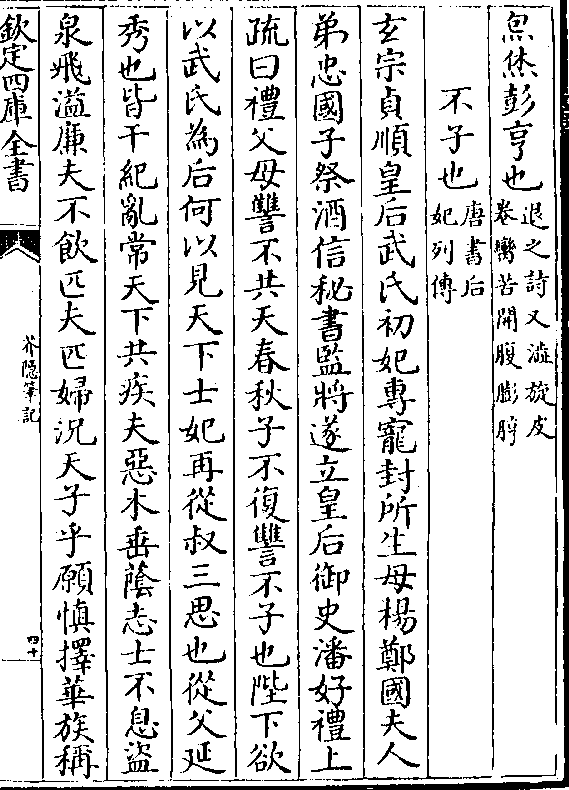 炰烋彭亨也退之詩又澁旋皮
卷臠苦開腹膨脝
不子也唐書后
妃列傳
玄宗貞順皇后武氏初妃専寵封所生母楊鄭國夫人
弟忠國子祭酒信秘書監將遂立皇后御史潘好禮上
疏曰禮父母讐不共天春秋子不復讐不子也陛下欲
以武氏為后何以見天下士妃再從叔三思也從父延
秀也皆干紀亂常天下共疾夫惡木垂蔭志士不息盜
泉飛溢廉夫不飲匹夫匹婦況天子乎願慎擇華族稱
欽定四庫全書
芥隠筆記
四十